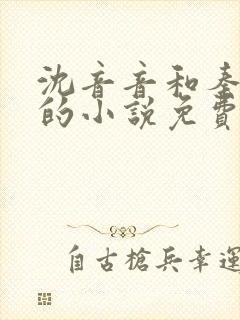 沈音音和秦
的小說免費
自古槍兵幸運